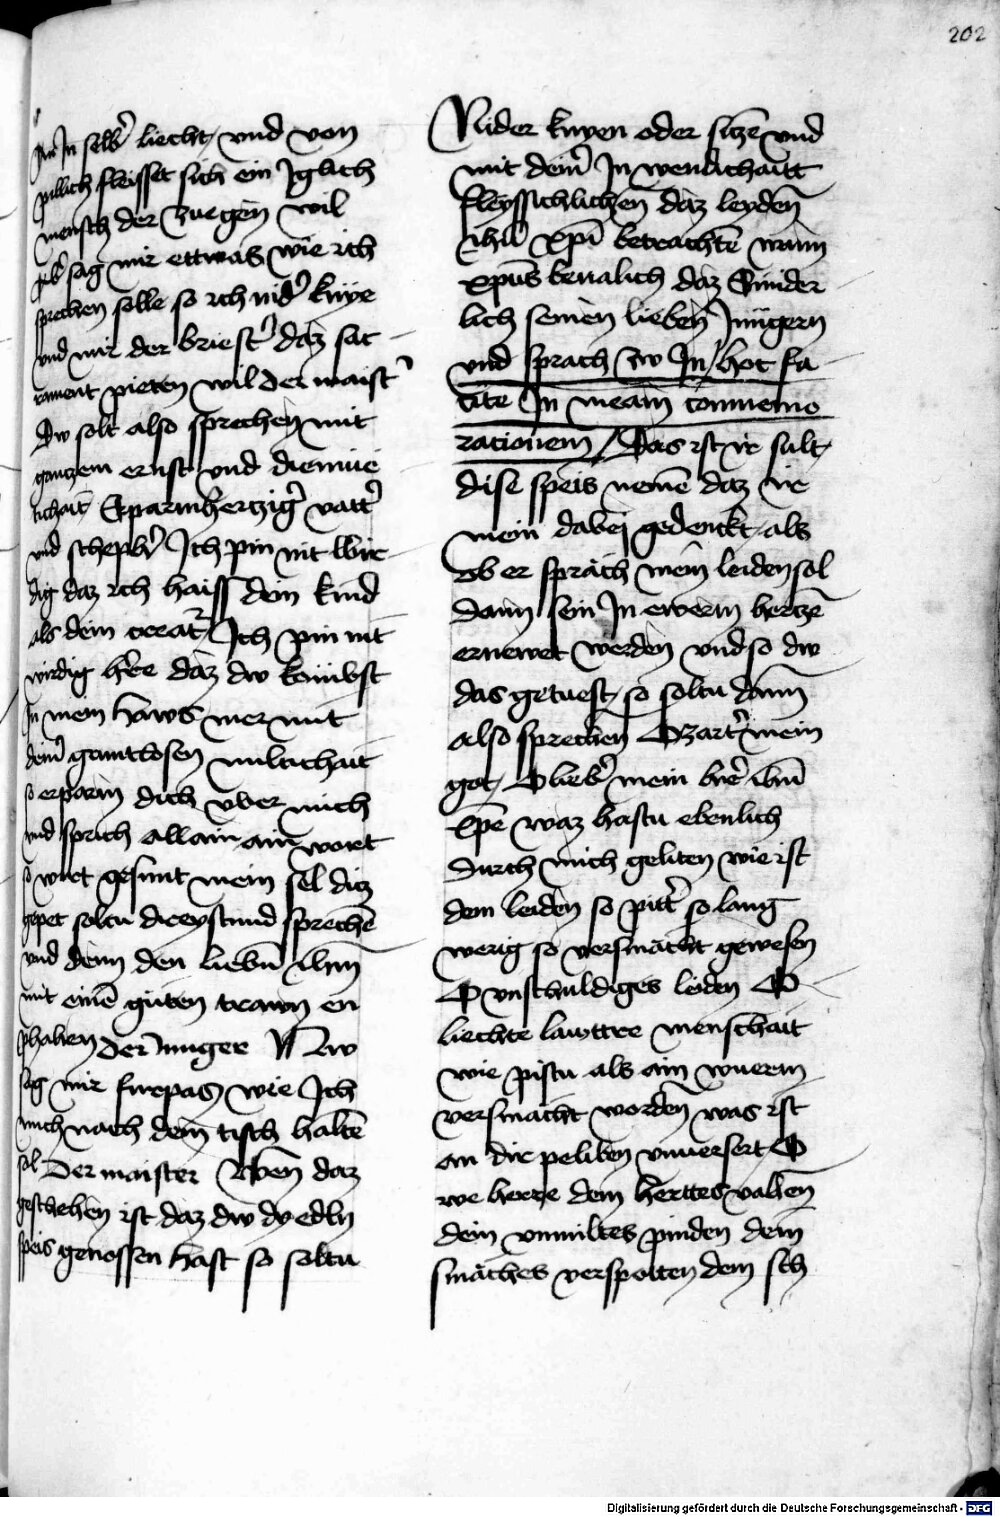 202
In selb̾ liecht vnd von
pillich fleisset sich ein Iglich
mensch der zue gen̄ wil
sag mir ettwas wie ich
sprechen solle so ich nid̾ knÿe
vnd mir der briest̾ daz sac
rament pieten wil der maist̾
Dw solt also sprechen mit
gantzem ernst vnd diemüe
tichait Eparmhertzig̾ vatt̾
vnd scheph̾ Ich pin nit wir
dig daz ich haiss dein kind
als dein creat̾ Ich pin nit
wirdig h̾re daz dw kombst
In mein haws mer mit
dein̾ gruntlosen miltichait
so erparm dich vber mich
vnd sprich allain ain wort
so wirt gesunt mein sel diz
gepet soltu dreystund sprechē
vnd denn den liebn̄ ihm̄
mit einē guten trawn en
phahen Der Iunger Nw
sag mir furpas wie Ich
mich nach dem tisch haltē
sol Der maister Wen̄ daz
geschehen ist daz dw dy edln
speis genossen hast so soltu
Nider knyen oder sitzē vnd
mit dein̾ Inwendichaitt
fleyssichlichen daz leyden̄
ihū xp̄i betrachtē wann
xp̄us beualich daz Sunder
lich seinen lieben Iungern
vnd sprach zw In / hoc fa
cite In meam commemo
racionem / Das ist ir sult
dise speis nemē daz ir
mein dabej gedenckt als
ob er sprach mein leiden sol
dann sein In ewerm hertzē
ernewet werden vnd so dw
das getuest so soltu dann
also sprechen O zart̾ mein
got O lieb̾ mein h̾re ihū
xp̄e waz hastu ebenlich
durch mich geliten wie ist
dein leiden so pitt̾ so lang
werig so versmacht gewesen
O vnschuldiges leiden O
liechte lawttre menschait
wie pistu als ain wuerm
versmacht worden was ist
an dir peliben vnuersert O
we herre dein herttes vahen
dein vnmiltes pinden dein
smaches verspotten dein sch
Digitalisierung gefördert durch die Deutsche Forschungsgemeinschaft - DFG